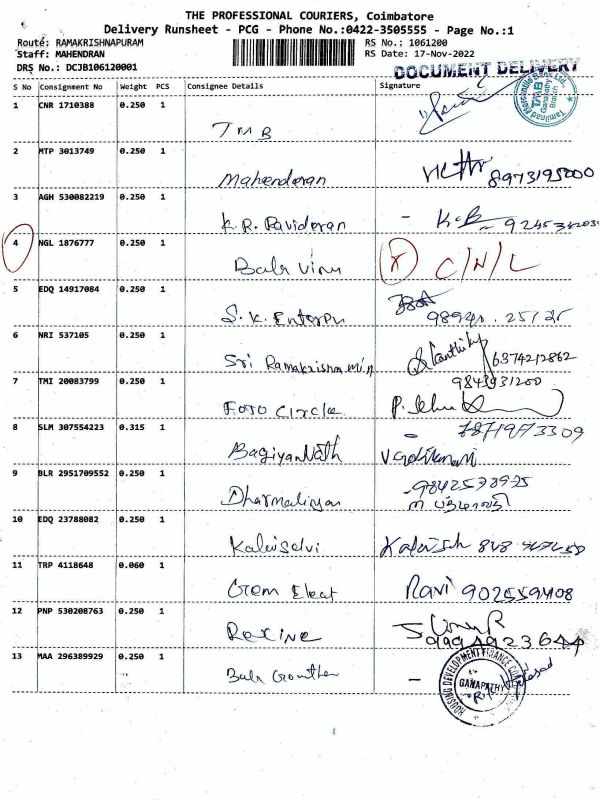 THE PROFESSIONAL COURIERS, Coimbatore
Delivery Runsheet - PCG - Phone No.:0422-3505555 - Page No.:1
Route: RAMAKRISHNAPURAM RS No.: 1061200
Staff: MAHENDRAN RS Date: 17-Nov-2022
DRS No.: DCJB106120001 DOCUMENT DELIVERY
S No Consignment No Weight PCS Consignee Details Signature
1 CNR 1710388 0.250 1
TMB
Tamilnad Mercantile Bank Ltd. TMB Ganapathy Branch
2 MTP 3013749 0.250 1
Mahenderan 8973195000
3 AGH 530082219 0.250 1
K.R. Ravideran
4 NGL 1876777 0.250 1
Bala Vinu C/N/L
5 EDQ 14917084 0.250 1
S.K. Enterpr
6 NRI 537105 0.250 1
Sri Ramakrishna min 6374212862
7 TMI 20083799 0.250 1 9843931200
FOTO Circle
8 SLM 307554223 0.315 1 7871973309
BagiyanNath
9 BLR 2951709552 0.250 1 9842578975
Dharmalingam
10 EDQ 23788082 0.250 1
Kaleiselvi
11 TRP 4118648 0.060 1
Gem Eleat Ravi
12 PNP 530208763 0.250 1
Rexine 9994923644
13 MAA 296389929 0.250 1
Bala Gowthm
HOUSING DEVELOPMENT FINANCE
GANAPATHY